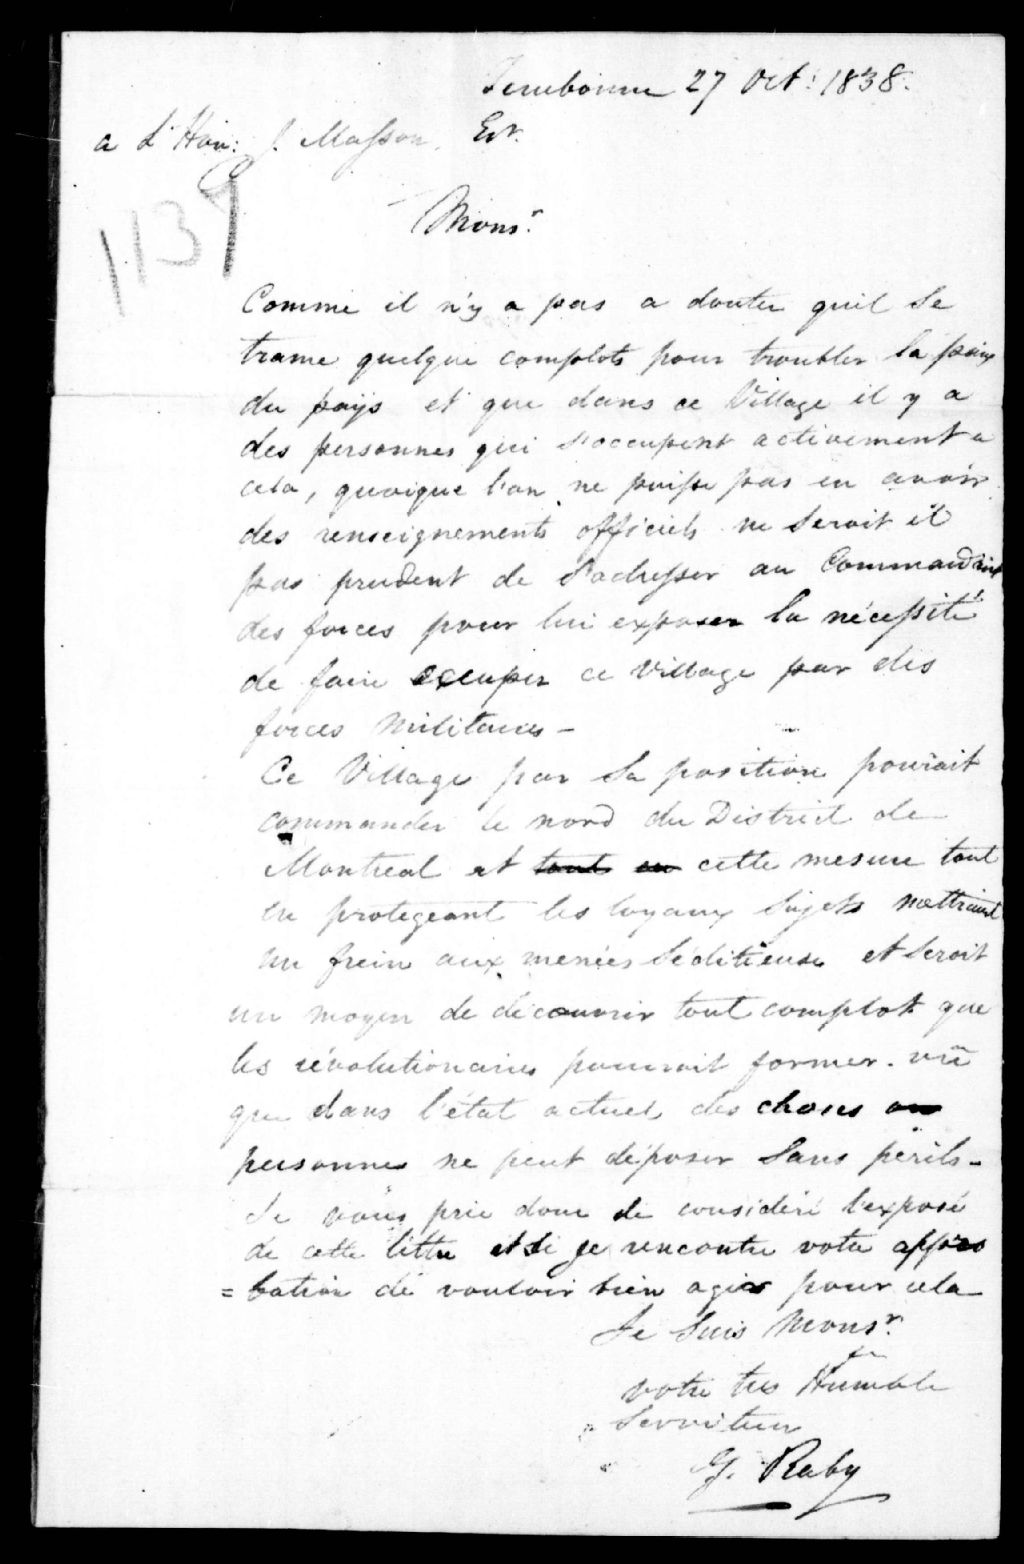 Terrebonne 27 Oct: 1838.
a L'Hon: J. Masson, Er.
1137
Monsr.
Comme il n'y a pas a douter quil se
trame quelque complots pour troubler la paix
du pays et que dans ce Village il y a
des personnes qui s'occupent activement a
cela, quoique l'on ne puisse pas en avoir
des renseignements officiels ne seroit il
pas prudent de s'adresser au Commandant
des forces pour lui exposer la nécessité
de faire occuper ce village par des
forces militaires –
Ce Village par sa position pourait
commander le nord du District de
Montreal et tout en cette mesure tout
en protegeant les loyaux sujets mettraient
un frein aux menées séditieuse et seroit
un moyen de découvrir tout complot que
les révolutionaires pourroit former. vû
que dans l'état actuel des choses on
personnes ne peut déposer sans périls –
Je vous prie donc de considéré l'exposé
de cette lettre et si je rencontre votre appro
= bation de vouloir bien agir pour cela
Je suis Monsr.
votre tres Humble
Serviteur
G. Raby